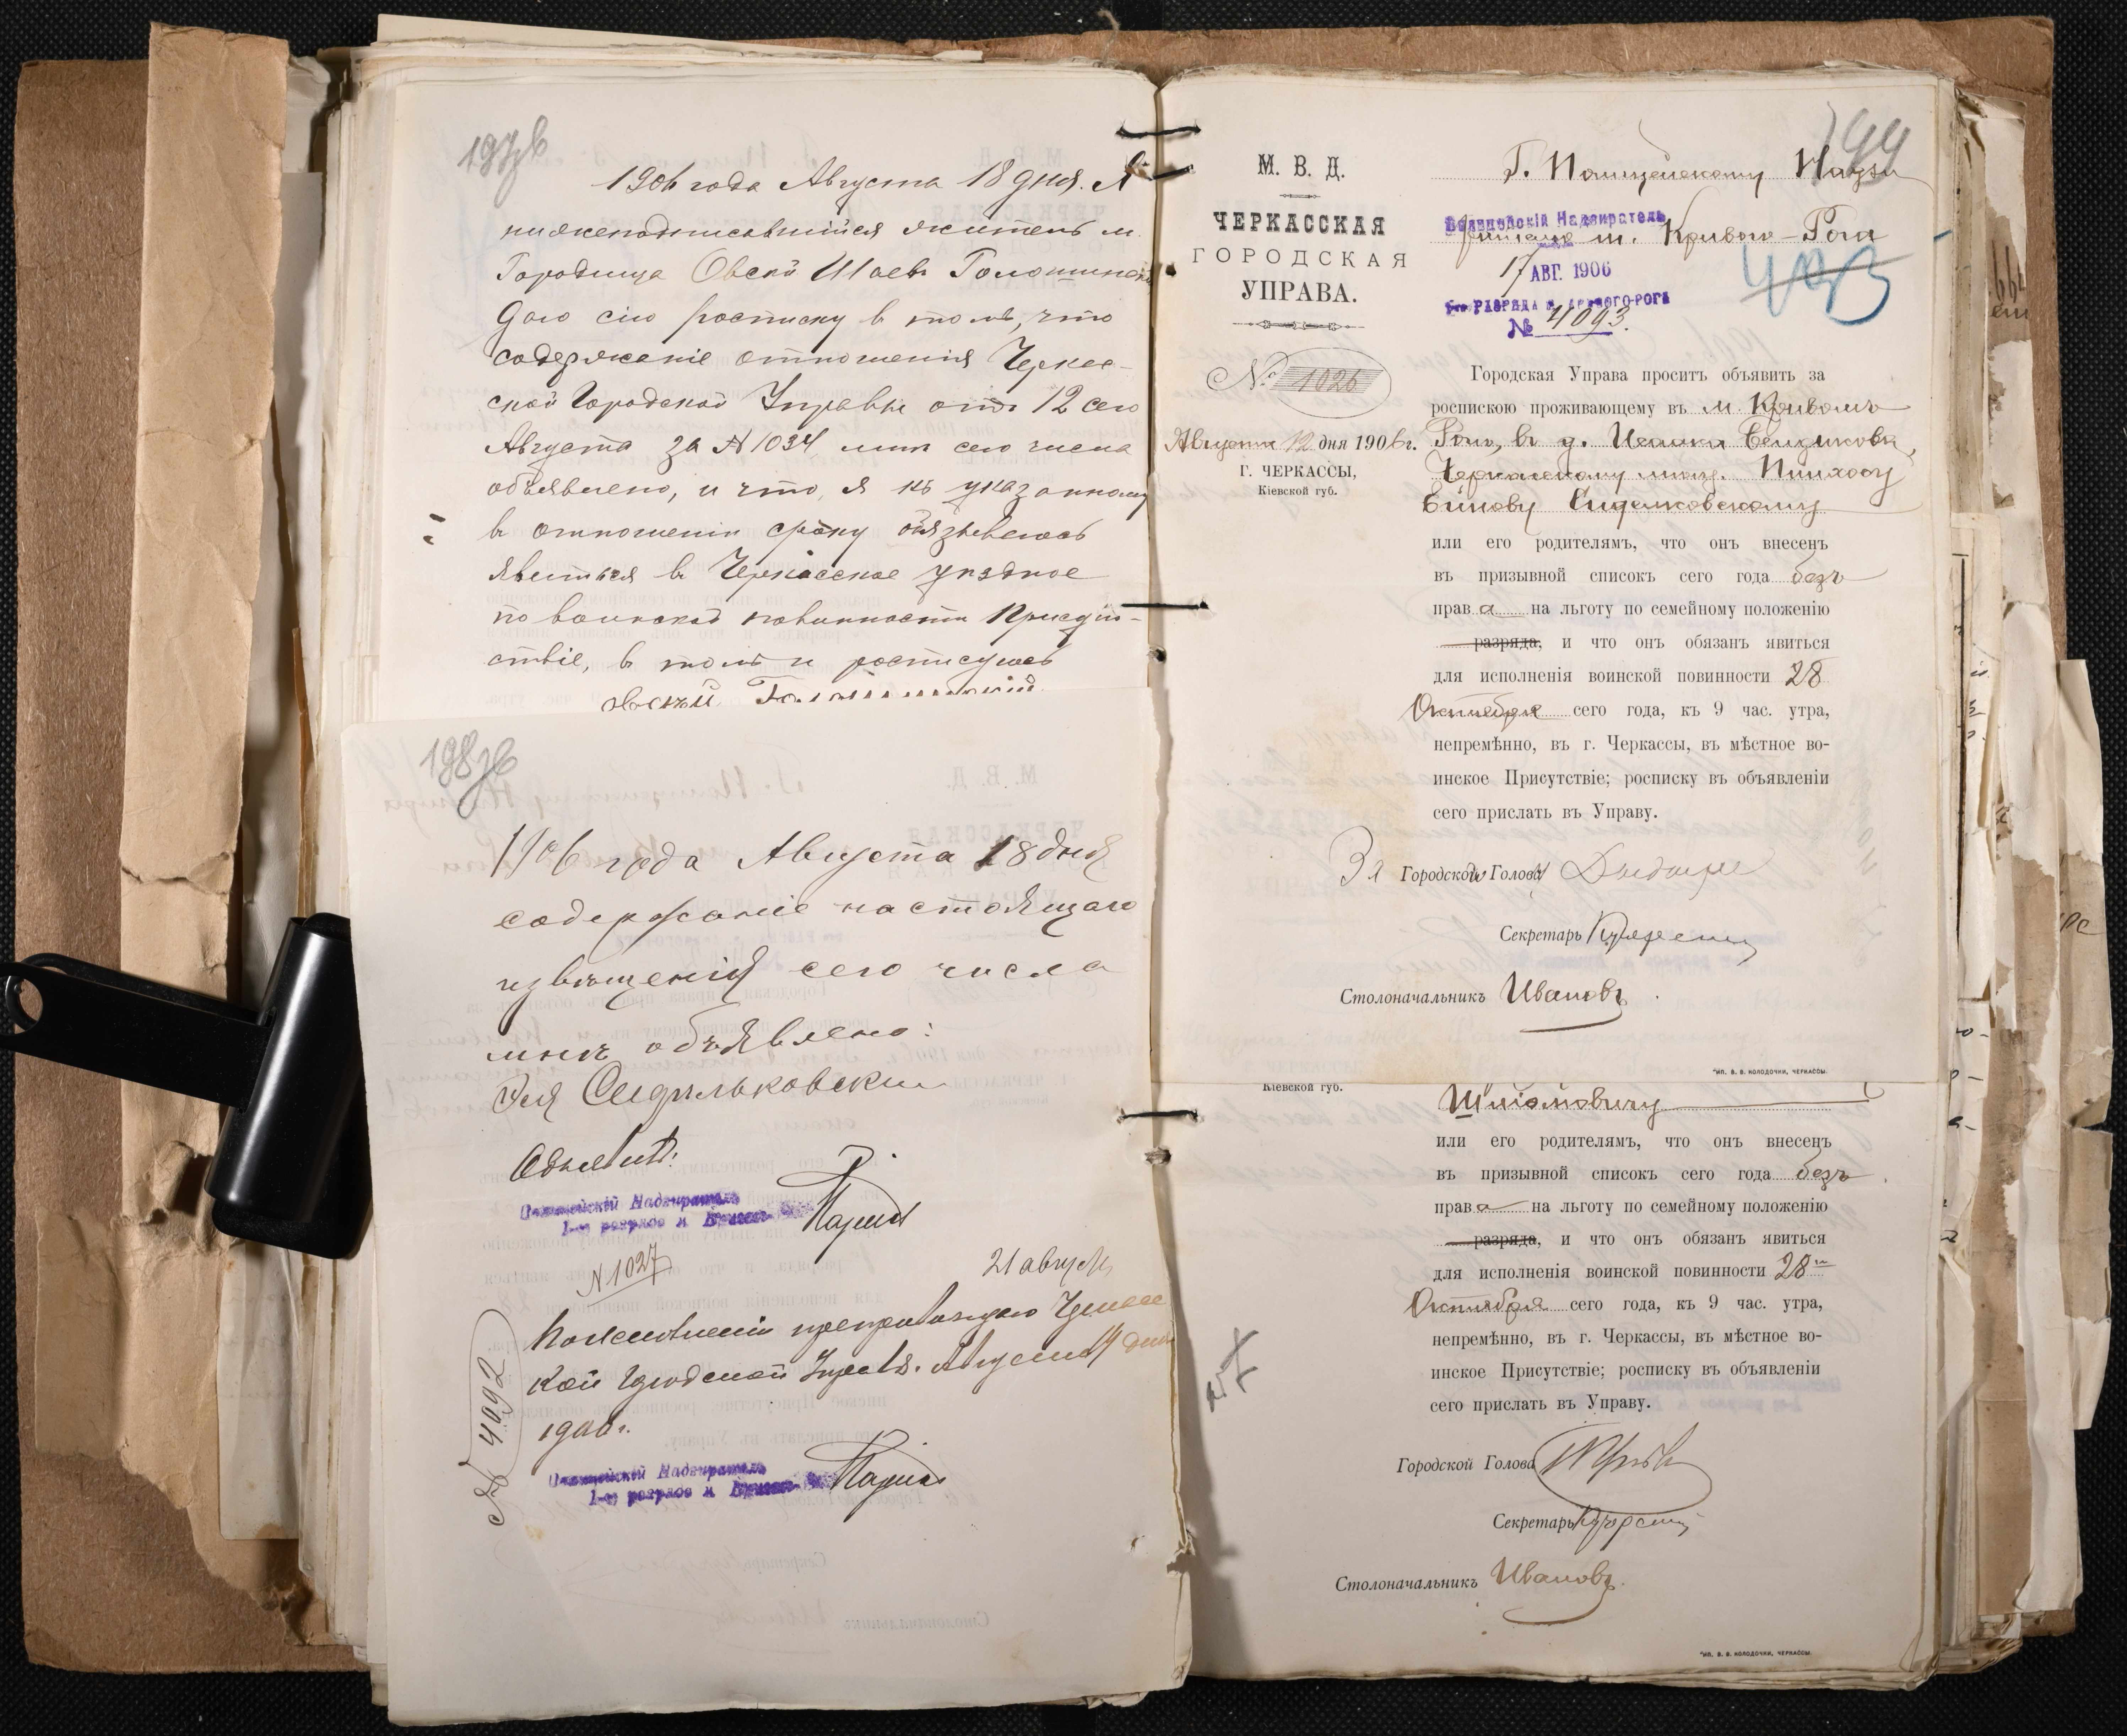 197об
1906 года Августа 18 дня. Я
нижеподписавшійся житель м.
Городища Овсей Шаев Голошинскій
даю сію росписку в томъ, что
содержаніе отношенія Черкас-
ской Городской Управы отъ 12 сего
Августа за № 1034 мнѣ сего числа
объявлено, и что я къ указанному
в отношеніи сроку обязываюсь
явиться в Черкасское уѣздное
по воинской повинности Присут-
ствіе, в томъ и росписуюсь
198об
1906 года Августа 18 дня
содержаніе настоящаго
извѣщенія сего числа
мнѣ объявлено:
Сидельковскій
Объявилъ:
Полицейскій Надзиратель
1-го разряда м.
№ 1027
21 августа
По исполненіи препровождаю Черкас
кой Городской Управѣ. Августа 19 дня
1906 г.
№ 4092
Полицейскій Надзиратель
1-го разряда м.
199
М. В. Д.
ЧЕРКАССКАЯ
ГОРОДСКАЯ
УПРАВА.
№ 1026
Августа 12 дня 1906 г.
Г. ЧЕРКАССЫ,
Кіевской губ.
Г. Полицейскому Надзи
рателю м. Кривого-Рога
Полицейскій Надзиратель
17 АВГ. 1906
1-го РАЗРЯДА м. КРИВОГО-РОГА
№ 4093.
493
Городская Управа проситъ объявить за
роспискою проживающему въ м. Кривомъ
Рогѣ, въ д.
Черкасскому мѣщ. Пинхосу
Сидельковскому
или его родителямъ, что онъ внесенъ
въ призывной списокъ сего года безъ
права на льготу по семейному положенію
разряда, и что онъ обязанъ явиться
для исполненія воинской повинности 28
Октября сего года, къ 9 час. утра,
непремѣнно, въ г. Черкассы, въ мѣстное во-
инское Присутствіе; росписку въ объявленіи
сего прислать въ Управу.
За Городского Голову
Секретарь
Столоначальникъ Ивановъ
Тип. В. В. КОЛОДОЧКИ, ЧЕРКАССЫ.
Кіевской губ.
Шліомовичу
или его родителямъ, что онъ внесенъ
въ призывной списокъ сего года безъ
права на льготу по семейному положенію
разряда, и что онъ обязанъ явиться
для исполненія воинской повинности 28
Октября сего года, къ 9 час. утра,
непремѣнно, въ г. Черкассы, въ мѣстное во-
инское Присутствіе; росписку въ объявленіи
сего прислать въ Управу.
Городской Голова
Секретарь
Столоначальникъ Ивановъ
Тип. В. В. КОЛОДОЧКИ, ЧЕРКАССЫ.